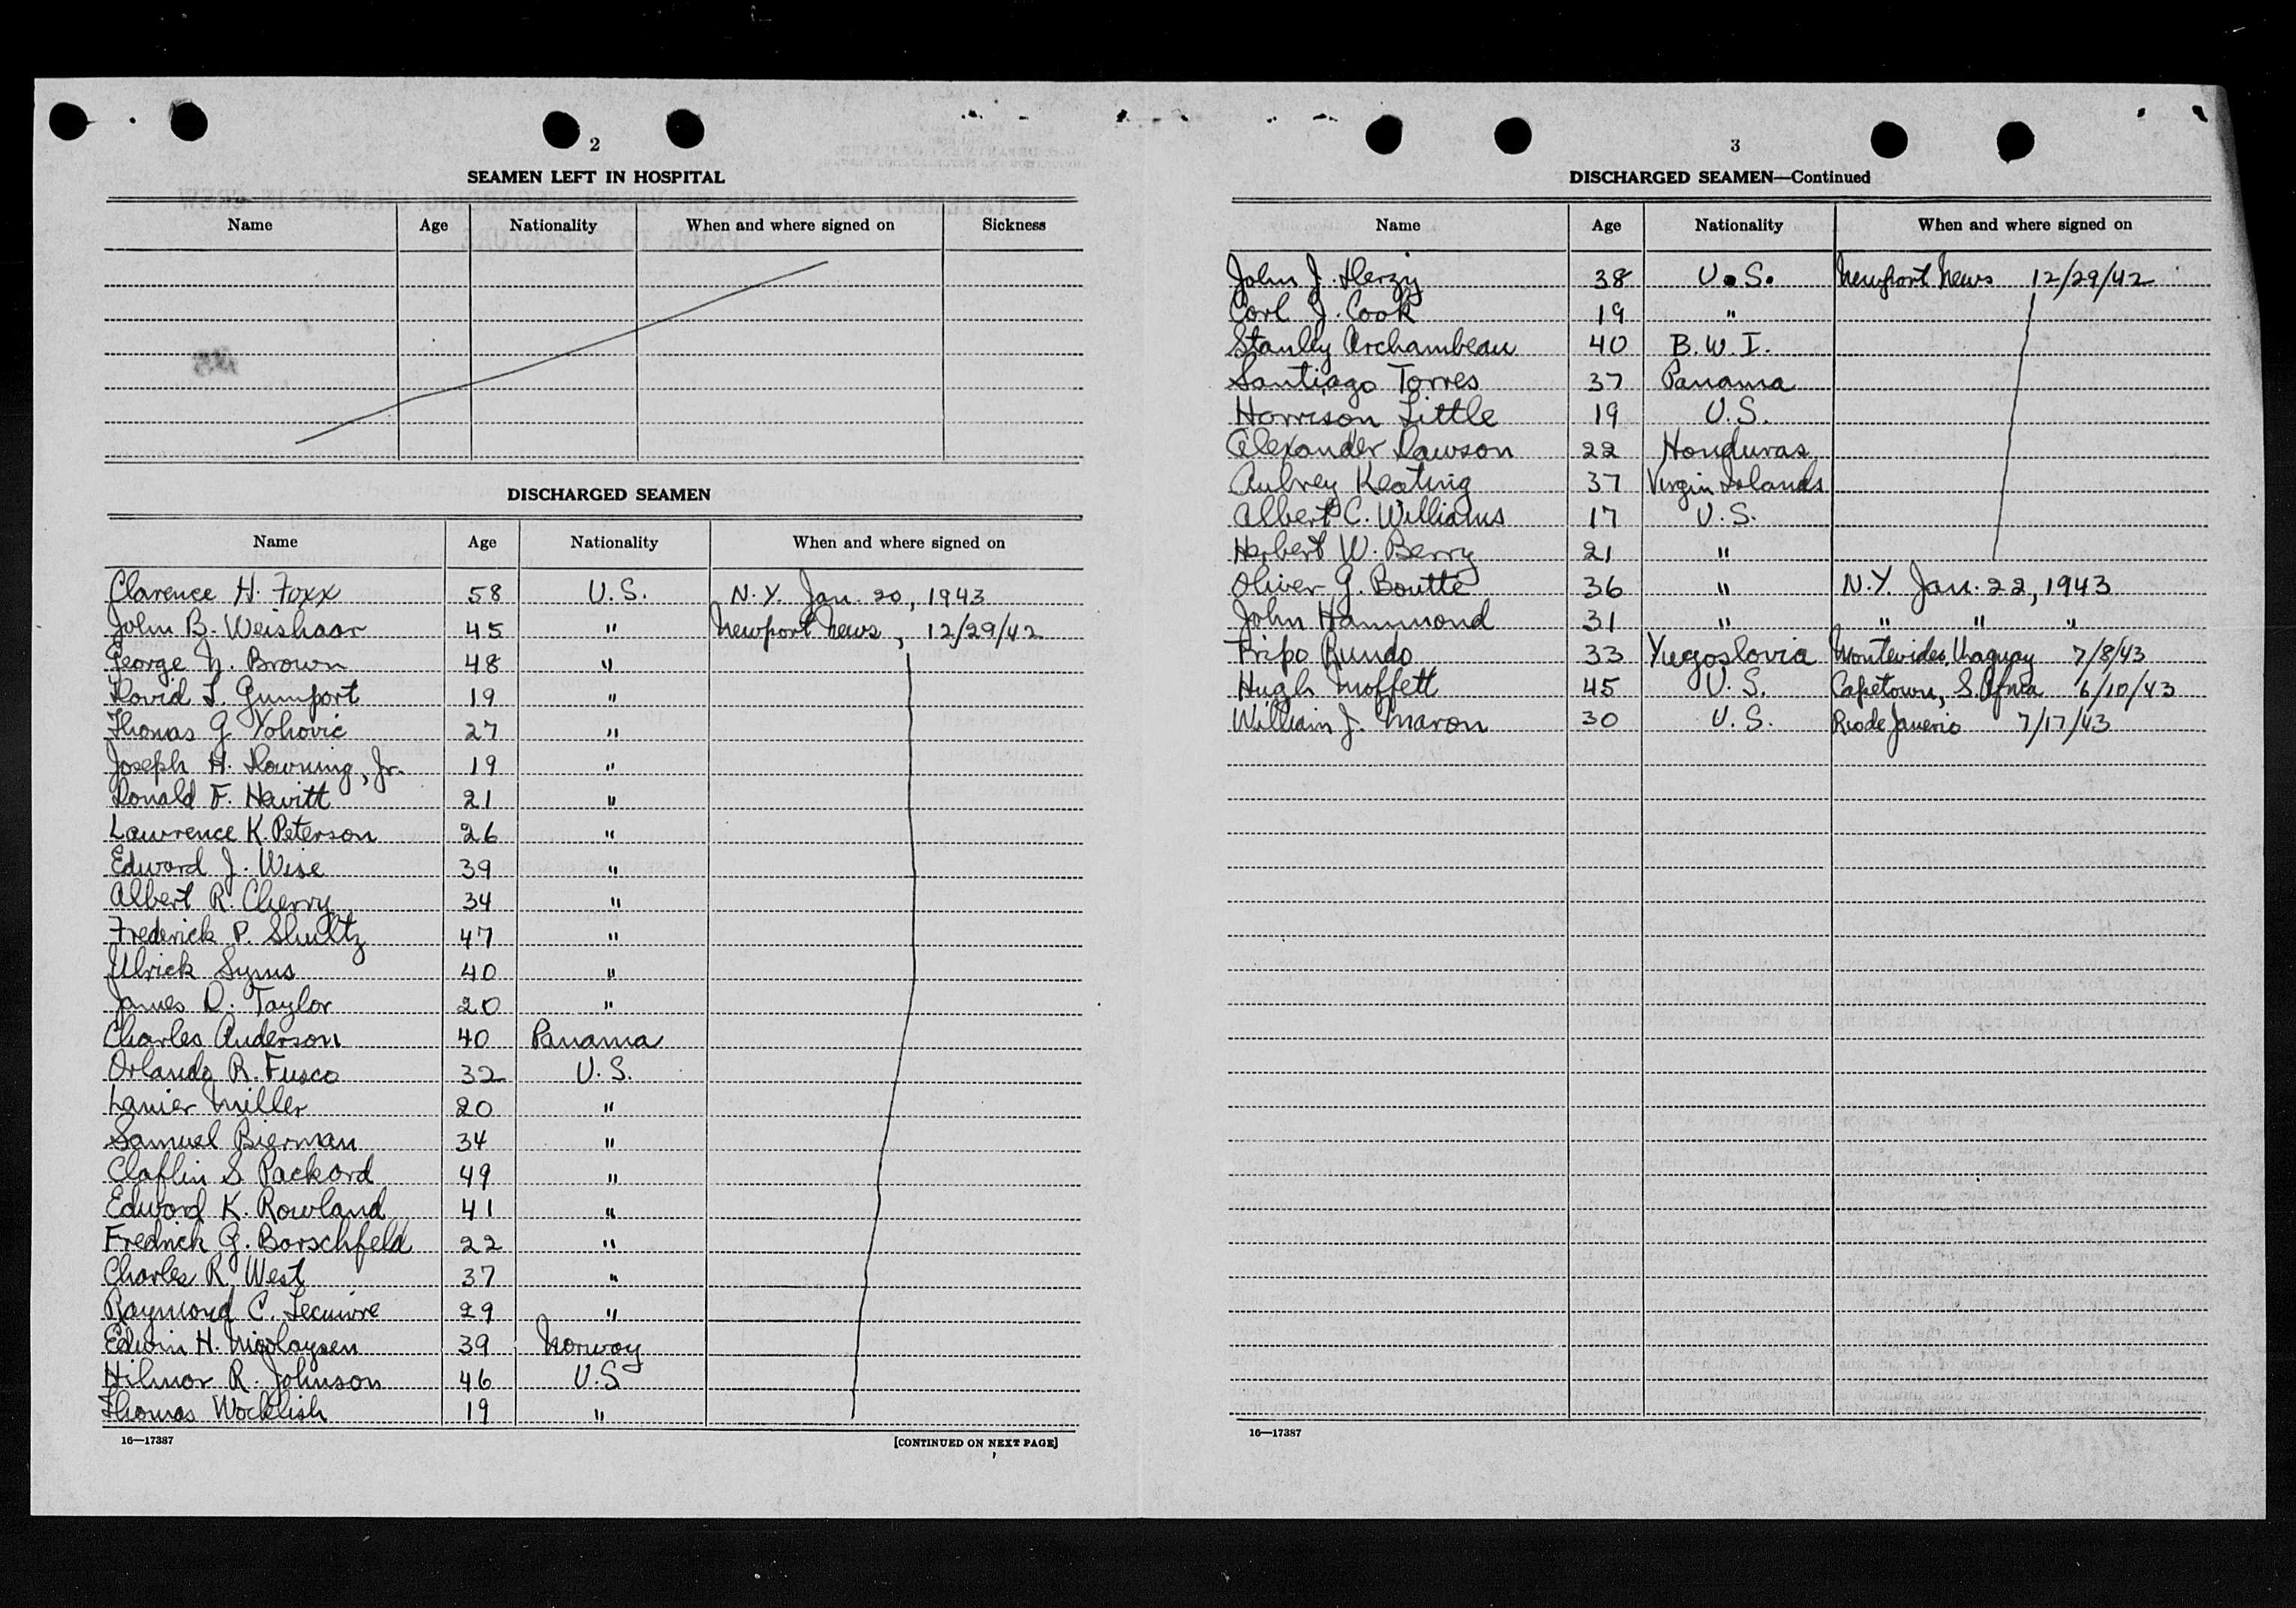 2
SEAMEN LEFT IN HOSPITAL
Name Age Nationality When and where signed on Sickness
DISCHARGED SEAMEN
Name Age Nationality When and where signed on
Clarence H. Foxx 58 U.S. N.Y. Jan. 20, 1943
John B. Weishaar 45 " Newport News, 12/29/42
George N. Brown 48 "
David L. Gumport 19 "
Thomas G Yohovic 27 "
Joseph H. Downing, Jr. 19 "
Donald F. Hewitt 21 "
Lawrence K. Peterson 26 "
Edward J. Wise 39 "
Albert R. Cherry 34 "
Frederick P. Shultz 47 "
Ulrick Syms 40 "
James D. Taylor 20 "
Charles Anderson 40 Panama
Orlando R. Fusco 32 U.S.
Lanier Miller 20 "
Samuel Bierman 34 "
Claflin S Packard 49 "
Edward K. Rowland 41 "
Fredrick G. Borschfeld 22 "
Charles R. West 37 "
Raymond C. 29 "
Edwin H. Nicolaysen 39 Norway
Hilmar R. Johnson 46 U.S
Thomas Wocklish 19 "
16—17387
[CONTINUED ON NEXT PAGE]
3
DISCHARGED SEAMEN—Continued
Name Age Nationality When and where signed on
John J. Herzig 38 U.S. Newport News 12/29/42
Carl J. Cook 19 "
Stanley Archambeau 40 B.W.I.
Santiago Torres 37 Panama
Harrison Little 19 U.S.
Alexander Dawson 22 Honduras
Aubrey Keating 37 Virgin Islands
Albert C. Williams 17 U.S.
Herbert W. Berry 21 "
Oliver G. Boutte 36 " N.Y. Jan. 22, 1943
John Hammond 31 " " " "
Pripo Rundo 33 Yugoslovia Montevideo, Uraguay 7/8/43
Hugh Moffett 45 U.S. Capetown, S. Africa 6/10/43
William J. Maron 30 U.S. Rio de Janerio 7/17/43
16—17387